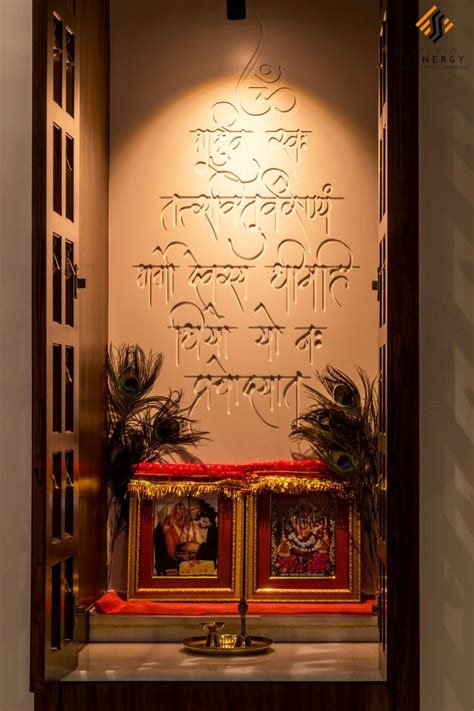 STUDIO
NERGY
ॐ
भूर्भुव स्वः
तत्सवितुर्वरेण्यं
भर्गो देवस्य धीमहि
धियो यो नः
प्रचोदयात